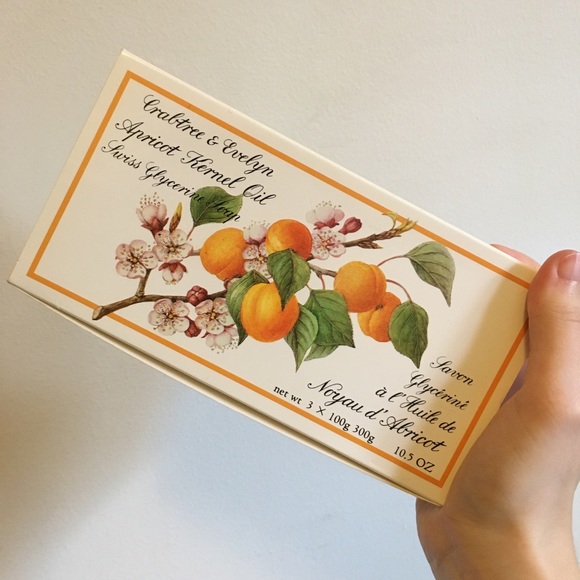 Crabtree & Evelyn
Apricot Kernel Oil
Swiss Glycerine Soap
Savon
Glycériné
à l'Huile de
Noyau d'Abricot
net wt 3 × 100g 300g 10.5 OZ